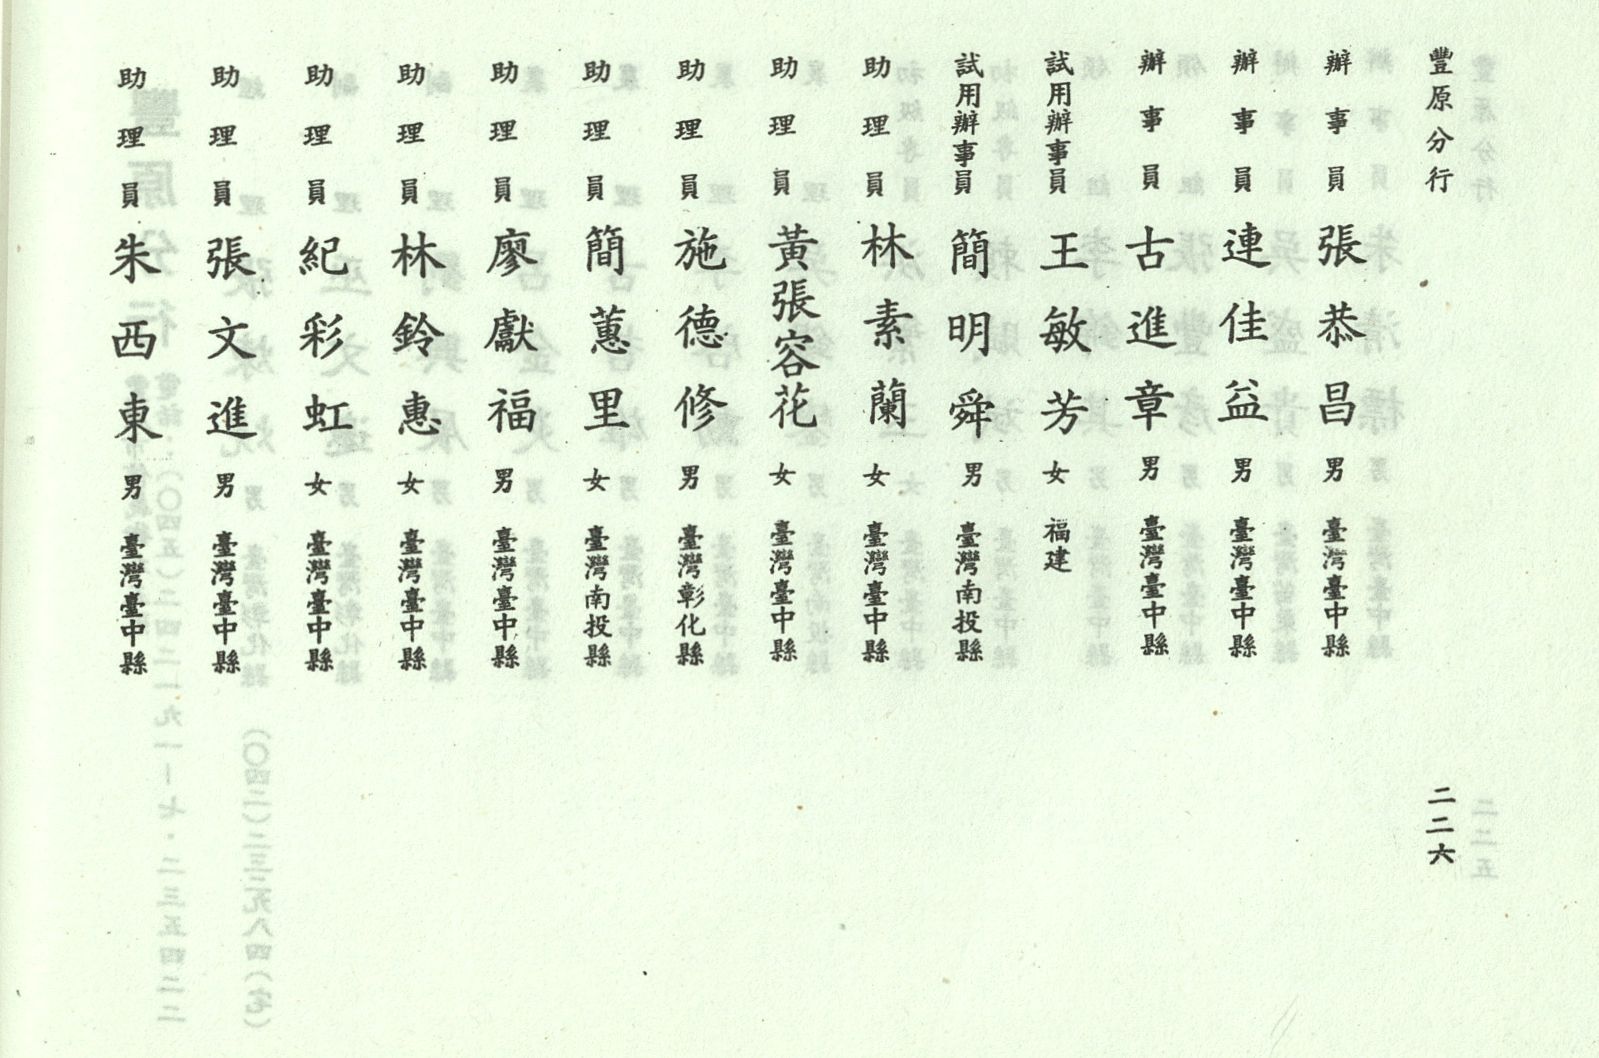 豐原分行
辦事員 張恭昌 男 臺灣臺中縣
辦事員 連佳益 男 臺灣臺中縣
辦事員 古進章 男 臺灣臺中縣
試用辦事員 王敏芳 女 福建
試用辦事員 簡明舜 男 臺灣南投縣
助理員 林素蘭 女 臺灣臺中縣
助理員 黃張容花 女 臺灣臺中縣
助理員 施德修 男 臺灣彰化縣
助理員 簡蕙里 女 臺灣南投縣
助理員 廖獻福 男 臺灣臺中縣
助理員 林鈴惠 女 臺灣臺中縣
助理員 紀彩虹 女 臺灣臺中縣
助理員 張文進 男 臺灣臺中縣
助理員 朱西東 男 臺灣臺中縣
二二六